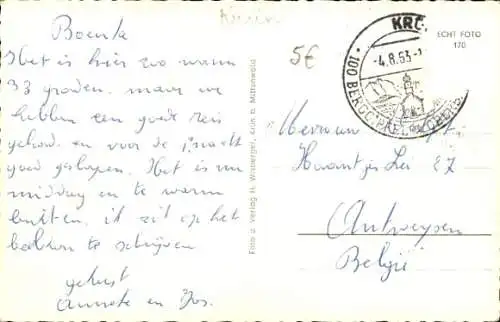 Boenka
Het is hier zoo warm
33 graden. maar we
hebben een goede reis
gehad en voor de nacht
goed geslapen. Het is nu
middag en te warm
buiten, ik zit op het
balkon te schrijven
gekust
Annete en Jos.
5€
KRÜ
-4.8.53-1
100 BERGG
OBERB
ECHT FOTO
170
Foto u. Verlag H. Wisberger, Krün b. Mittenwald
Mevrouw
Haantjes Lei 87
Antwerpen
België